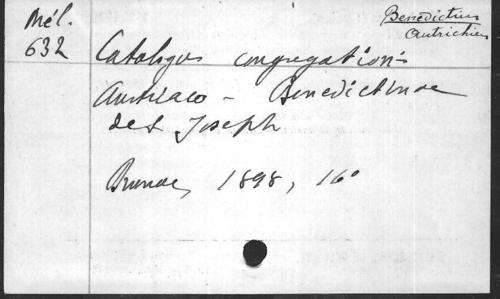 Mél.
632
Bénédictins
autrichiens
Catalogus congregationis
Austriaco - Benedictinae
de S Joseph
Brunae, 1898, 16°